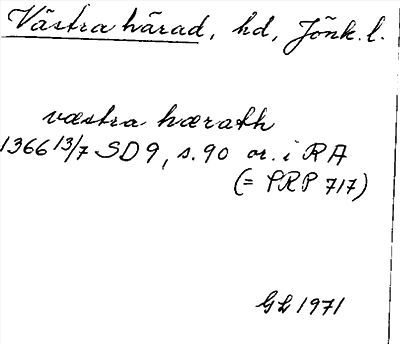 Västra härad, hd, Jönk. l.
væstra hærath
1366 13/7 SD 9, s. 90 or. i RA
(= PRP 717)
GL 1971